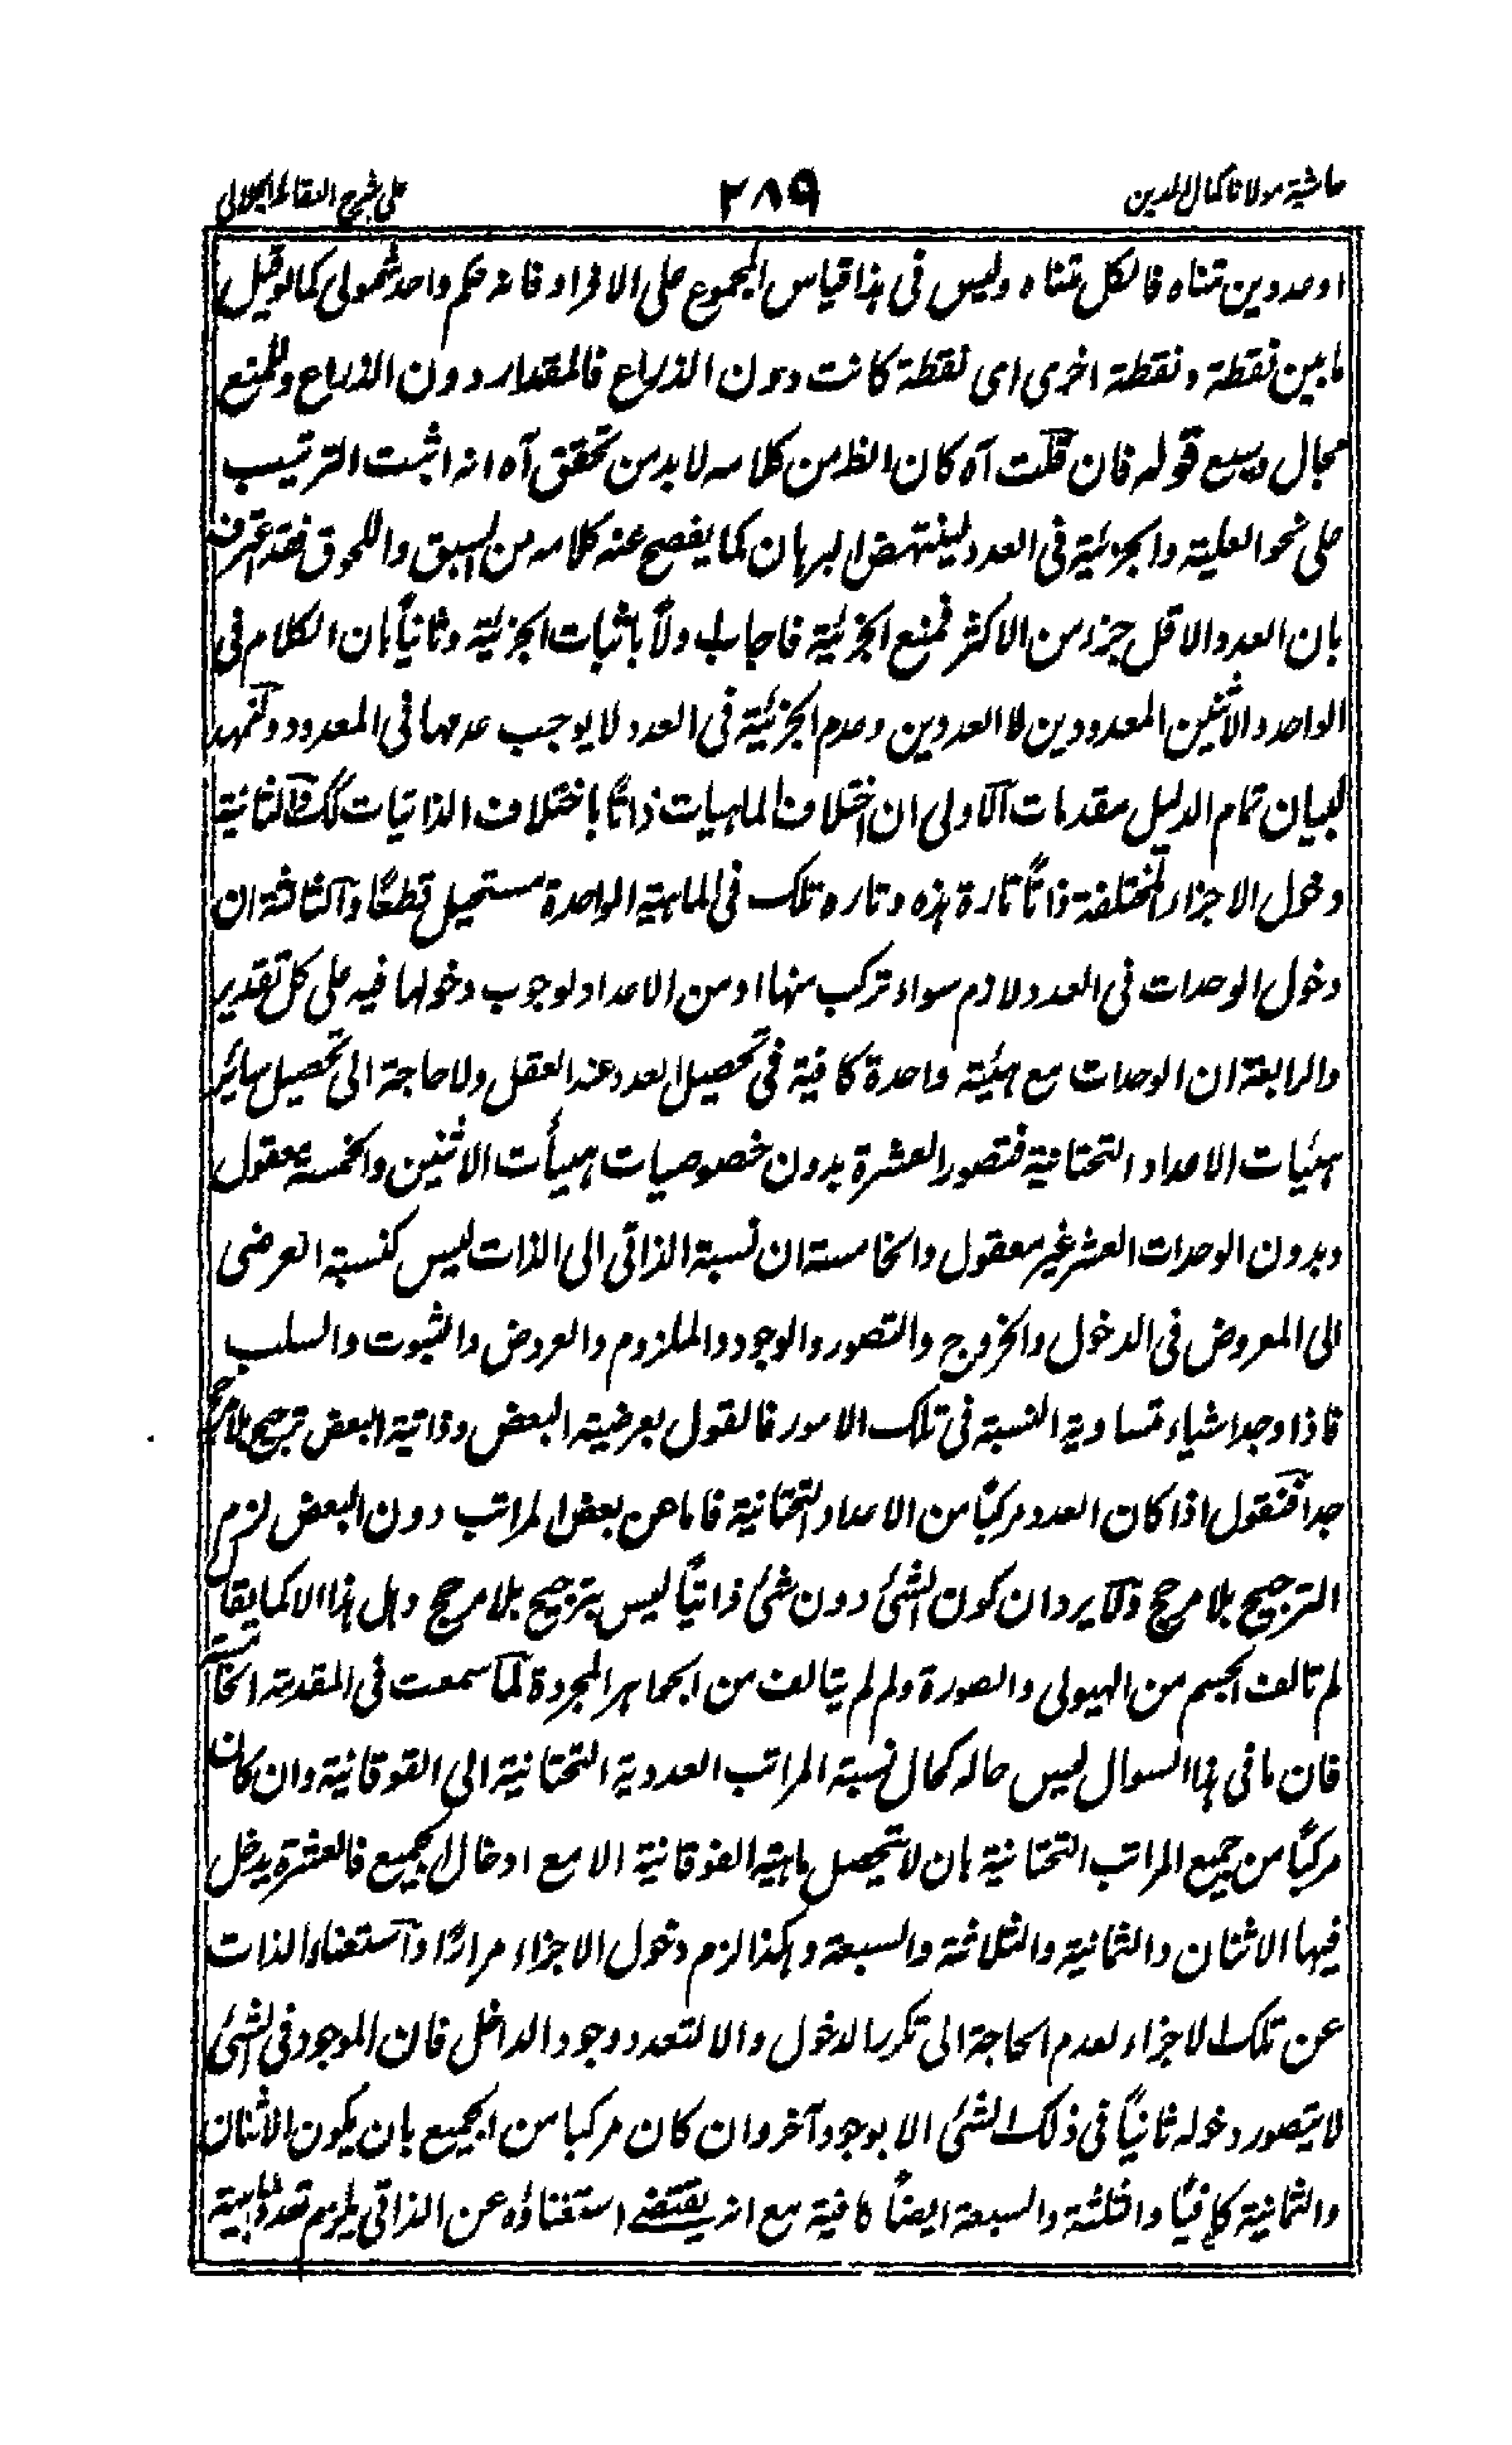 حاشية مولانا كمال الدين
٢٨٩
على شرح العقائد الجلالى
او عددين متناه فالكل متناه وليس فى هذا قياس المجموع على الافراد فانه حكم واحد شمولى كما لو قيل
ما بين نقطة ونقطة اخرى اى نقطة كانت دون الذراع فالمقدار دون الذراع وللمنع
مجال وسيع قوله فان قلت آه كان الظ من كلامه لا بد من تحقق آه انه اثبت الترتيب
على نحو العلية والجزئية فى العدد لينتهض البرهان كما يفصح عنه كلامه من السبق واللحوق فقد اعترف
بان العدد الاقل جزء من الاكثر فمنع الجزئية فاجاب اولاً باثبات الجزئية وثانياً بان الكلام فى
الواحد والاثنين المعدودين لا العددين وعدم الجزئية فى العدد لا يوجب عدمها فى المعدود ولنمهد
لبيان تمام الدليل مقدمات الاولى ان اختلاف الماهيات ذاتاً باختلاف الذاتيات كك والثانية
دخول الاجزاء المختلفة ذاتاً تارة هذه وتاره تلك فى الماهية الواحدة مستحيل قطعًا والثالثة ان
دخول الوحدات فى العدد لازم سواء تركب منها او من الاعداد لوجوب دخولها فيه على كل تقدير
والرابعة ان الوحدات مع هيئة واحدة كافية فى تحصيل العدد عند العقل ولا حاجة الى تحصيل سائر
هئيات الاعداد التحتانية فتصور العشرة بدون خصوصيات هيأت الاثنين والخمسة معقول
وبدون الوحدات العشر غير معقول والخامسة ان نسبة الذاتى الى الذات ليس كنسبة العرضى
الى المعروض فى الدخول والخروج والتصور والوجود والملزوم والعروض والثبوت والسلب
فاذا وجد اشياء متساوية النسبة فى تلك الامور فالقول بعرضية البعض وذاتية البعض ترجيح بلا مرجح
جدا فنقول اذا كان العدد مركبًا من الاعداد التحتانية فاما من بعض المراتب دون البعض لزم
الترجيح بلا مرجح ولا يرد ان كون الشئ دون شئ ذاتياً ليس بترجيح بلا مرجح وهل هذا الا كما يقال
لم تالف الجسم من الهيولى والصورة ولم لم يتالف من الجواهر المجردة لما سمعت فى المقدمة الخامسة
فان ما فى هذا السوال ليس حاله كحال نسبة المراتب العددية التحتانية الى الفوقانية وان كان
مركبًا من جميع المراتب التحتانية بان لا تحصل ماهية الفوقانية الا مع ادخال الجميع فالعشرة يدخل
فيها الاثنان والثمانية والثلاثة والسبعة وهكذا لزم دخول الاجزاء مرارًا واستغناء الذات
عن تلك الاجزاء لعدم الحاجة الى تكرر الدخول والا لتعدد وجود الداخل فان الموجود فى الشئ
لا يتصور دخوله ثانياً فى ذلك الشئ الا بوجود آخر وان كان مركبا من الجميع بان يكون الاثنان
والثمانية كافيًا والثلثة والسبعة ايضاً كافية مع انه يقتضى استغناؤه عن الذاتى يلزم تعدد ماهية